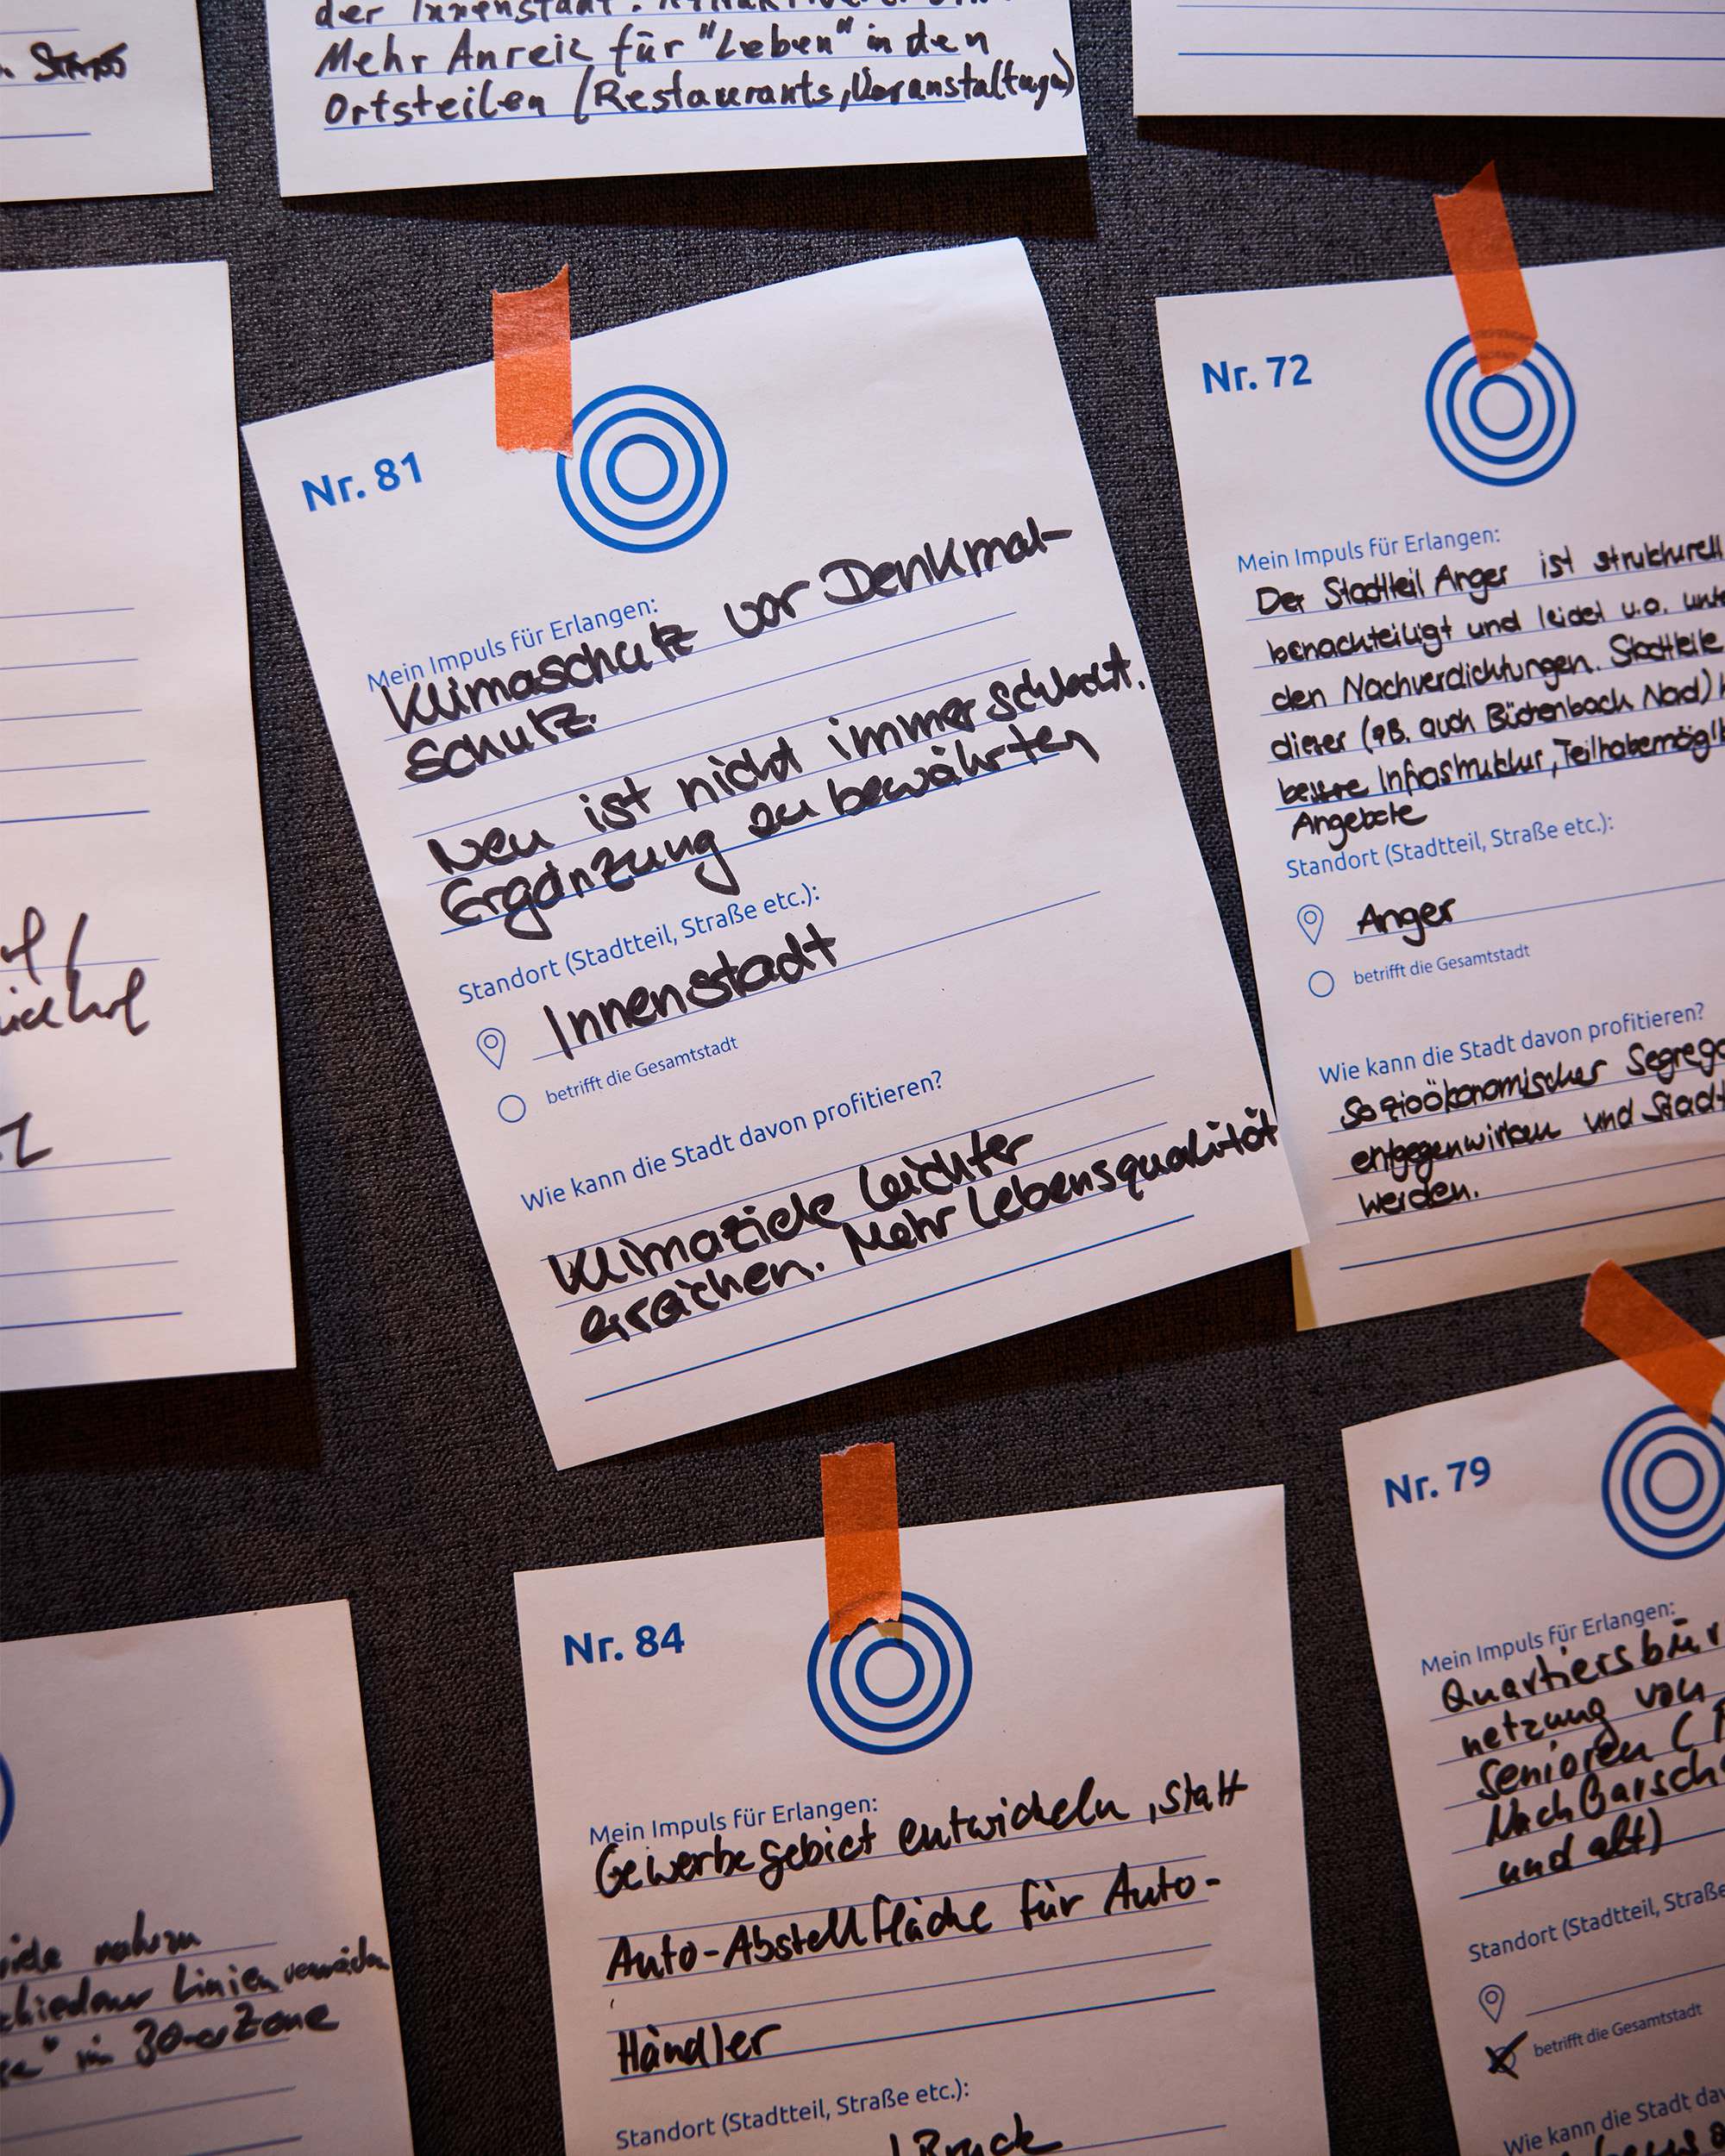 STATT
der Innenstadt.
Mehr Anreiz für "Leben" in den
Ortsteilen (Restaurants, Veranstaltungen)
Nr. 81
Mein Impuls für Erlangen:
Klimaschutz vor Denkmal-
schutz.
Neu ist nicht immer schlecht.
Ergänzung zu bewährten
Standort (Stadtteil, Straße etc.):
Innenstadt
betrifft die Gesamtstadt
Wie kann die Stadt davon profitieren?
Klimaziele leichter
erreichen. Mehr Lebensqualität
Nr. 72
Mein Impuls für Erlangen:
Der Stadtteil Anger ist strukturell
benachteiligt und leidet u.a. unte
den Nachverdichtungen. Stadtteile
dieser (z.B. auch Büchenbach Nord)
bessere Infrastruktur, Teilhabemögl
Angebote
Standort (Stadtteil, Straße etc.):
Anger
betrifft die Gesamtstadt
Wie kann die Stadt davon profitieren?
Sozioökonomischer Segrega
entgegenwirken und Stadt
werden.
Nr. 84
Mein Impuls für Erlangen:
Gewerbegebiet entwickeln, statt
Auto-Abstellfläche für Auto-
Händler
Standort (Stadtteil, Straße etc.):
Bruck
Nr. 79
Mein Impuls für Erlangen:
Quartiersbür
netzung von
Senioren (
Nachbarsch
und alt)
Standort (Stadtteil, Straße
betrifft die Gesamtstadt
Wie kann die Stadt da
nahezu
chiedener Linien vermeiden
" in 30er Zone